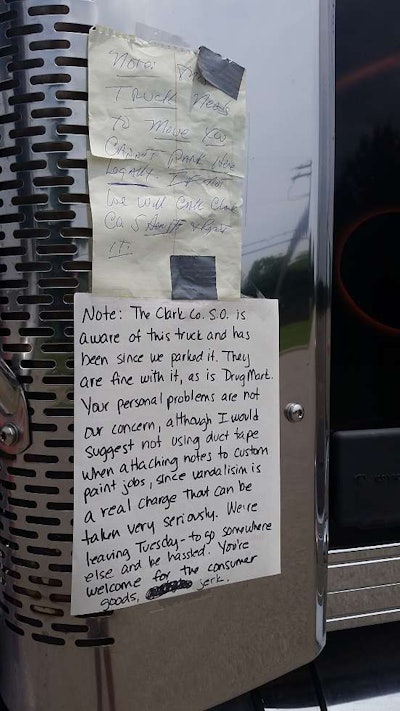 Note: This
Truck Needs
to Move You
Cannot Park Here
Legally.
We will Call Clark
Co Sheriff
IT.
Note: The Clark Co. S.O. is
aware of this truck and has
been since we parked it. They
are fine with it, as is DrugMart.
Your personal problems are not
our concern, although I would
suggest not using duct tape
when attaching notes to custom
paint jobs, since vandalisim is
a real charge that can be
taken very seriously. We're
leaving Tuesday - to go somewhere
else and be hassled. You're
welcome for the consumer
goods, jerk.